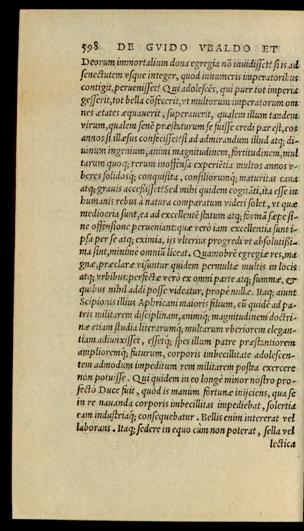 598 DE GVIDO VBALDO ET
Deorum immortalium dona egregia nō inuidisset! si is ad
senectutem vsque integer, quod innumeris imperatoribus
contigit, peruenisset! Qui adolescēs, qui puer tot imperia
gesserit, tot bella cōfecerit, vt multorum imperatorum om
nes ætates æquauerit, superauerit, qualem illum tandem
virum, qualem senē præstaturum se fuisse credi par est, eos
annos si illæsus confecisset! si ad admirandum illud atq; di-
uinum ingenium, animi magnitudinem, fortitudinem, mul
tarum quoq; rerum inoffensa experiētia multos annos v-
beres solidosq; conquisita, consiliorumq; maturitas cana
atq; grauis accessisset! Sed mihi quidem cogitāti, ita esse in
humanis rebus a natura comparatum videri solet, vt quæ
mediocria sunt, ea ad excellentē statum atq; formā sæpe si-
ne offensione perueniant: quæ verò iam excellentia sunt i-
psa per se atq; eximia, ijs vlterius progredi vt absolutissi-
ma sint, minimè omniū liceat. Quamobrē egregiæ res, ma
gnæ, præclaræ visuntur quidem permultæ multis in locis
atq; vrbibus: perfectæ verò ex omni parte atq; summæ, &
quibus nihil addi posse videatur, propè nullæ. Itaq; aiunt
Scipionis illius Aphricani maioris filium, cū quidē ad pa-
tris militarem disciplinam, animiq; magnitudinem doctri-
næ etiam studia literarumq; multarum vberiorem elegan-
tiam adiunxisset, essetq; spes illum patre præstantiorem
amplioremq; futurum, corporis imbecillitate adolescen-
tem admodum impeditum rem militarem postea exercere
non potuisse. Qui quidem in eo longè minor nostro pro-
fectò Duce fuit, quòd is manum fortunæ inijciens, qua se
in re nauanda corporis imbecillitas impediebat, solertia
eam industriaq; consequebatur. Bellis enim intererat vel
laborans. Itaq; sedere in equo cùm non poterat, sella vel
lectica